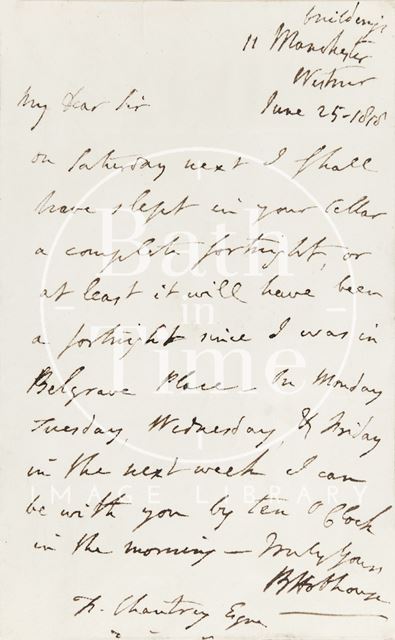 buildings
11 Manchester
Westmr
My Dear Sir
June 25-1818
on Saturday next I shall
have slept in your Cellar
a complete fortnight, or
at least it will have been
a fortnight since I was in
Belgrave Place - In Monday
Tuesday, Wednesday, & Friday
in the next week I can
be with you by Ten O'Clock
in the morning - Truly Yours
BHobhouse
F. Chantrey Esqre
Bath
in
Time
IMAGE LIBRARY